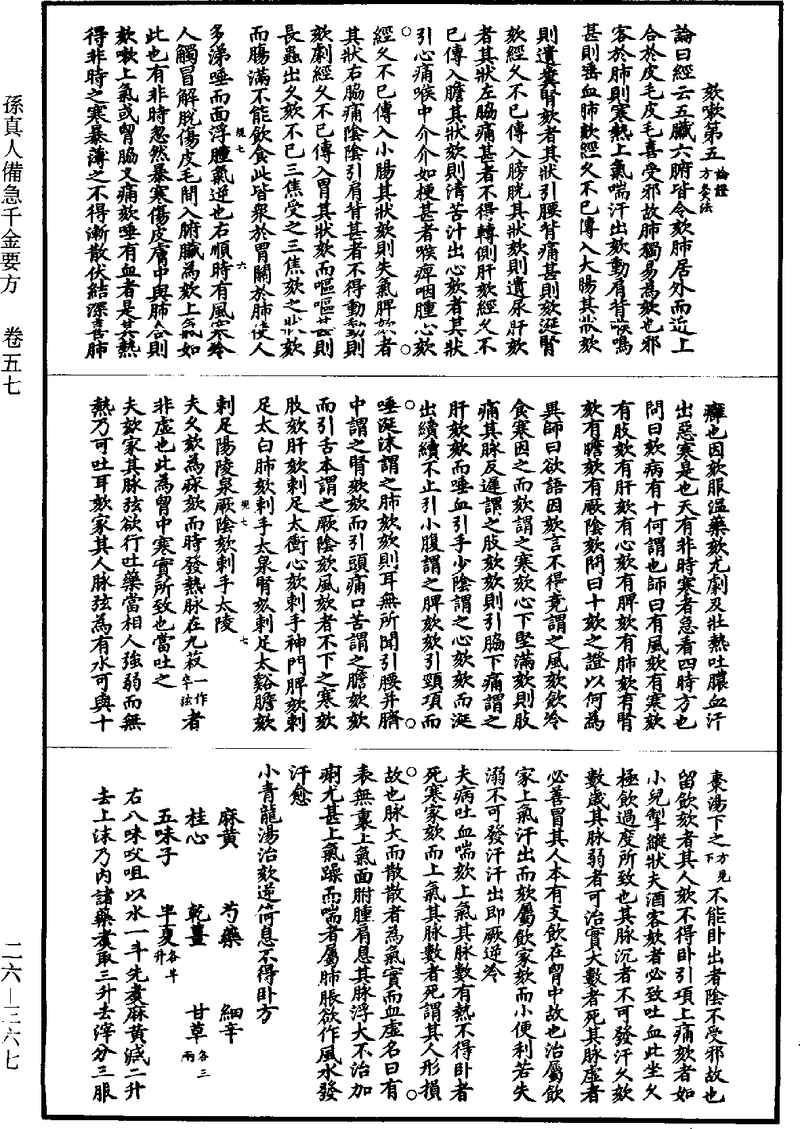 欬嗽第五 論證方灸法
論曰經云五臟六腑皆令欬肺居外而近上
合於皮毛皮毛喜受邪故肺獨易為欬也邪
客於肺則寒熱上氣喘汗出欬動肩背喉鳴
甚則唾血肺欬經久不已傳入大腸其狀欬
則遺糞腎欬者其狀引腰背痛甚則欬涎腎
欬經久不已傳入膀胱其狀欬則遺尿肝欬
者其狀左脇痛甚者不得轉側肝欬經久不
已傳入膽其狀欬則清苦汁出心欬者其狀
引心痛喉中介介如梗甚者喉痺咽腫心欬
經久不已傳入小腸其狀欬則失氣脾欬者
其狀右脇痛陰陰引肩背甚者不得動動則
欬劇經久不已傳入胃其狀欬而嘔嘔甚則
長蟲出久欬不已三焦受之三焦欬之狀欬
而腸滿不能飲食此皆聚於胃關於肺使人
規七
多涕唾而面浮腫氣逆也右順時有風寒冷
六
人觸冒解脫傷皮毛間入腑臟為欬上氣如
此也有非時忽然暴寒傷皮膚中與肺合則
欬嗽上氣或胷脇叉痛欬唾有血者是其熱
得非時之寒暴薄之不得漸散伏結深喜肺
癰也因欬服溫藥欬尤劇及壯熱吐膿血汗
出惡寒是也天有非時寒者急看四時方也
問曰欬病有十何謂也師曰有風欬有寒欬
有肢欬有肝欬有心欬有脾欬有肺欬有腎
欬有膽欬有厥陰欬問曰十欬之證以何為
異師曰欲語因欬言不得竟謂之風欬飲冷
食寒因之而欬謂之寒欬心下堅滿欬則肢
痛其脉反遲謂之肢欬欬則引脇下痛謂之
肝欬欬而唾血引手少陰謂之心欬欬而涎
出續續不止引小腹謂之脾欬欬引頸項而
唾涎沫謂之肺欬欬則耳無所聞引腰并臍
中謂之腎欬欬而引頭痛口苦謂之膽欬欬
而引舌本謂之厥陰欬風欬者不下之寒欬
肢欬肝欬刺足太衝心欬刺手神門脾欬刺
足太白肺欬刺手太泉腎欬刺足太谿膽欬
規七
刺足陽陵泉厥陰欬刺手太陵
七
夫久欬為㽷欬而時發熱脉在九菽一作卒弦者
非虛也此為胷中寒實所致也當吐之
夫欬家其脉弦欲行吐藥當相人強弱而無
熱乃可吐耳欬家其人脉弦為有水可與十
棗湯下之方見下不能卧出者陰不受邪故也
留飲欬者其人欬不得卧引項上痛欬者如
小兒掣縱狀夫酒客欬者必致吐血此坐久
極飲過度所致也其脉沉者不可發汗久欬
數歲其脉弱者可治實大數者死其脉虛者
必善冒其人本有支飲在胷中故也治屬飲
家上氣汗出而欬屬飲家欬而小便利若失
溺不可發汗汗出即厥逆冷
夫病吐血喘欬上氣其脉數有熱不得卧者
死寒家欬而上氣其脉數者死謂其人形損
故也脉大而散散者為氣實而血虛名曰有
表無裏上氣面胕腫肩息其脉浮大不治加
痢尤甚上氣躁而喘者屬肺脹欲作風水發
汗愈
小青龍湯治欬逆倚息不得卧方
麻黃 芍藥 細辛
桂心 乾薑 甘草各三兩
五味子 半夏各半升
右八味㕮咀以水一斗先煑麻黃減二升
去上沫乃內諸藥煑取三升去滓分三服
孫真人備急千金要方 卷五七
二六—三六七